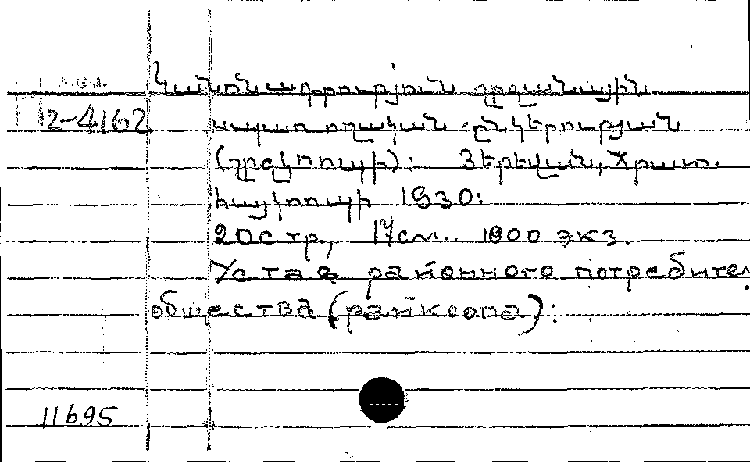 Կանոնադրություն շրջանային
12-4162
սպառողական ընկերության
(շրջկոոպի): Յերեվան, Հրատ.
հայկոոպի 1930:
20 стр., 17 см. 1000 экз.
Устав районного потребител.
общества (райкоопа):
11695